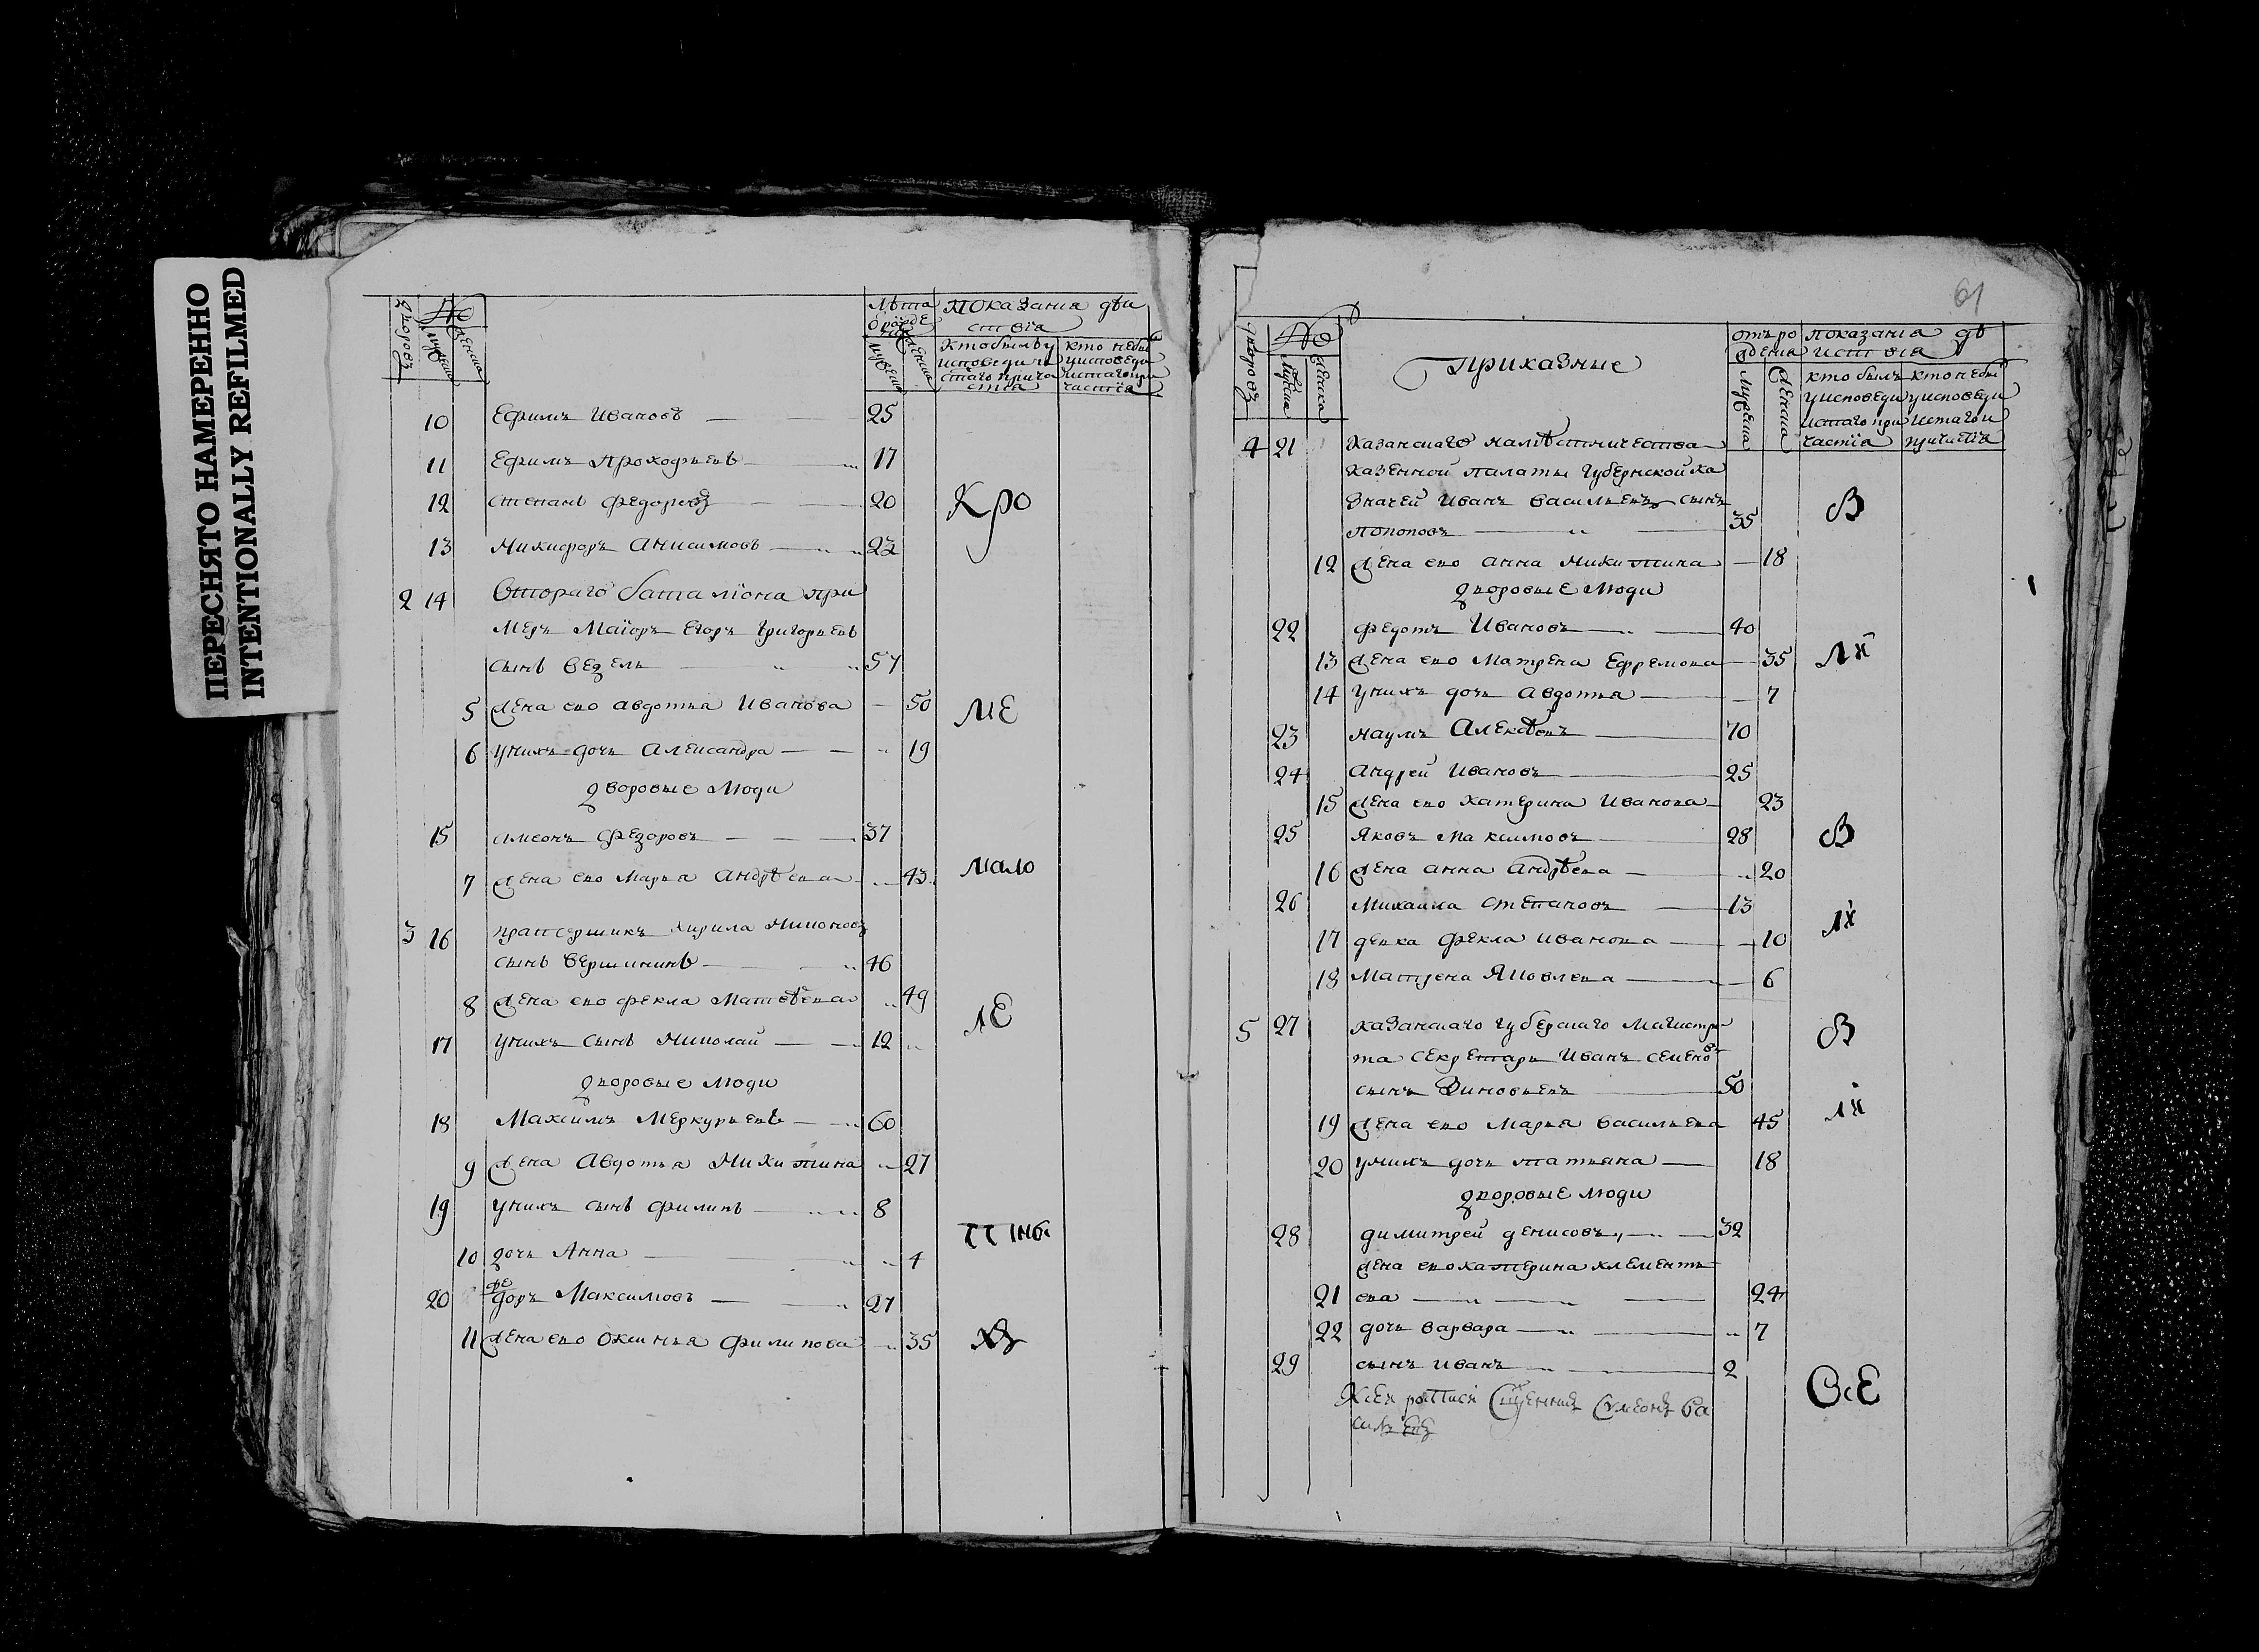 ПЕРЕСНЯТО НАМЕРЕННО
INTENTIONALLY REFILMED
дворовъ
№
мужеска
женска
Лѣта
Показания дѣи
ствїа
кто небы
10 Ефимъ Ивановъ 25
11 Ефимъ Прокофьевъ 17
12 степанъ Федоровъ 20
Кро
13 Никифоръ Анисимовъ 23
2 14 Втораго баталїона при
меръ Маїоръ Егоръ Григорьевъ
сынъ Везель 57
5 жена ево авдотья Иванова 50
МЕ
6 унихъ дочь Александра 19
дворовые люди
15 симеонъ Федоровъ 37
7 жена ево Марья Андрѣева 43
мало
3 16 прапорщикъ Кирила Никоновъ
сынъ Вершининъ 46
8 жена ево фекла Матвѣева 49
ЛЕ
17 унихъ сынъ Николай 12
дворовые люди
18 Максимъ Меркурьевъ 60
9 жена Авдотья Никитина 27
19 унихъ сынъ филипъ 8
10 дочь Анна 4
20 федоръ Максимовъ 27
11 жена ево Оксинья Филипова 35
61
дворовъ
№
мужеска
женска
Приказные
отъ ро
ждения
показанїа дѣ
иствїа
кто былъ
уисповеди
истаго при
частїа
кто небы
уисповеди
истаго и
4 21 Казанскаго намѣстничества
казенной палаты губернской ка
значей Иванъ Васильевъ сынъ
В
попововъ 35
12 жена ево анна Никитина 18
дворовые люди
22 федотъ Ивановъ 40
13 жена ево Матрена Ефремова 35
14 унихъ дочь авдотья 7
23 наумъ Алексѣевъ 70
24 Андрей Ивановъ 25
15 жена ево катерина Иванова 23
25 Яковъ Максимовъ 28
В
16 жена анна Андрѣева 20
26 Михаила степановъ 13
17 девка фекла иванова 10
18 Матрена Яковлева 6
5 27 казанскаго губерскаго магистра
В
та секретарь Иванъ семеновъ
сынъ Зиновьевъ 50
19 жена ево Марья васильева 45
20 унихъ дочь татьяна 18
дворовые люди
28 димитрей денисовъ 32
жена ево катерина клементь
21 ева 24
22 дочь варвара 7
29 сынъ иванъ 2
ВсЕ
Ксеи росписи Сщенникъ Симеонъ Ва
сильевъ